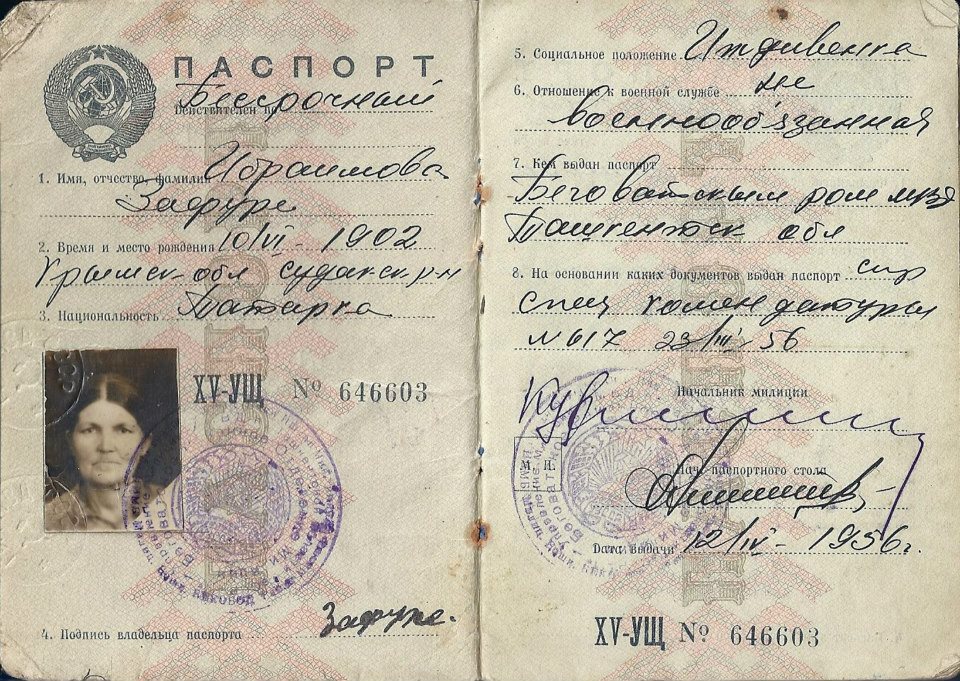 ПАСПОРТ
Бессрочный
Действителен по
1. Имя, отчество, фамилия Ибраимова
Зафуре
2. Время и место рождения 10/VI - 1902
Крымск. обл Судакск. р-н
3. Национальность Татарка
XV-УЩ № 646603
4. Подпись владельца паспорта Зафуре.
5. Социальное положение Иждивенка
6. Отношение к военной службе не
военнообязанная
7. Кем выдан паспорт
Беговатским ром мвд
Ташкентск обл
8. На основании каких документов выдан паспорт спр
спец комендатуры
№ 617 23/III-56
Начальник милиции
М. П.
Нач. паспортного стола
Дата выдачи 12/IV - 1956г.
XV-УЩ № 646603